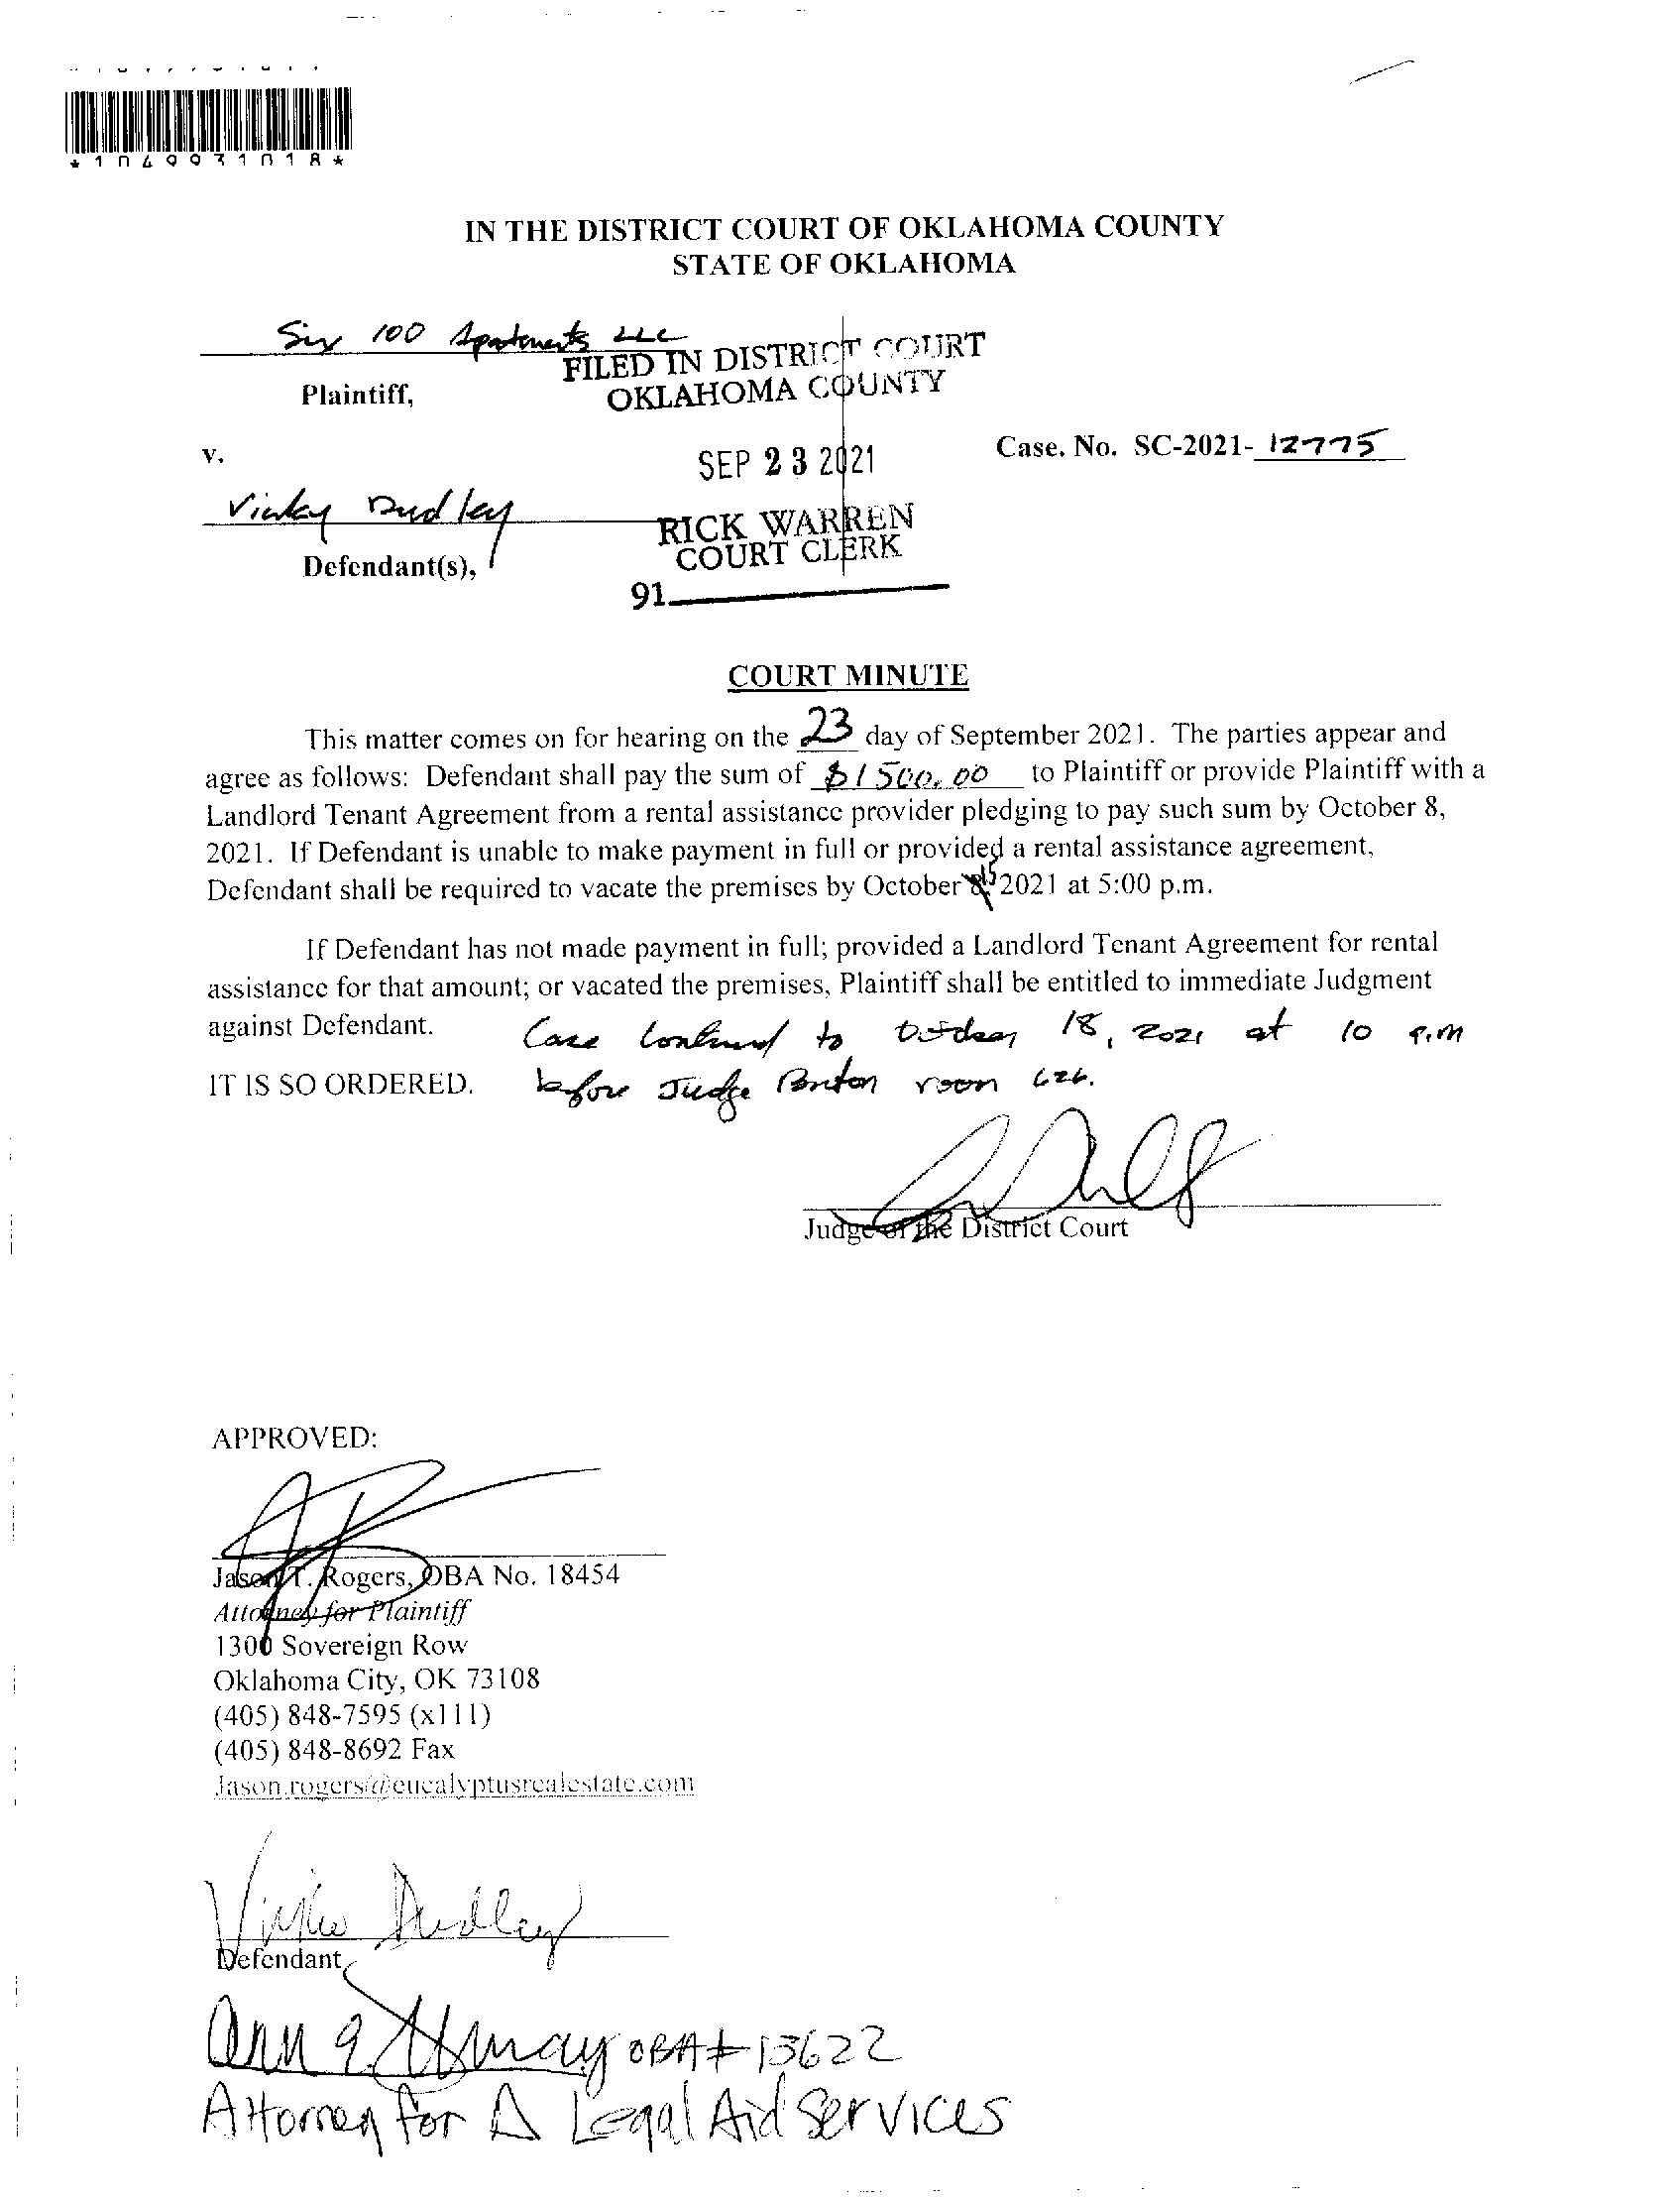 *1049931018*
IN THE DISTRICT COURT OF OKLAHOMA COUNTY
STATE OF OKLAHOMA
Six 100 Apartments LLC
Plaintiff,
FILED IN DISTRICT COURT
OKLAHOMA COUNTY
v.
SEP 23 2021
Case. No. SC-2021- 12775
Vicky Dudley
RICK WARREN
COURT CLERK
Defendant(s),
91
COURT MINUTE
This matter comes on for hearing on the 23 day of September 2021. The parties appear and
agree as follows: Defendant shall pay the sum of $1500.00 to Plaintiff or provide Plaintiff with a
Landlord Tenant Agreement from a rental assistance provider pledging to pay such sum by October 8,
2021. If Defendant is unable to make payment in full or provided a rental assistance agreement,
Defendant shall be required to vacate the premises by October 15 2021 at 5:00 p.m.
If Defendant has not made payment in full; provided a Landlord Tenant Agreement for rental
assistance for that amount; or vacated the premises, Plaintiff shall be entitled to immediate Judgment
against Defendant.
Case continued to October 18, 2021 at 10 a.m
IT IS SO ORDERED.
before Judge room 626.
Judge of the District Court
APPROVED:
Jason T. Rogers, OBA No. 18454
Attorney for Plaintiff
1300 Sovereign Row
Oklahoma City, OK 73108
(405) 848-7595 (x111)
(405) 848-8692 Fax
Jason.rogers@eucalyptusrealestate.com
Dudley
Defendant
Ann OBA# 13622
Attorney for Δ Legal Aid Services